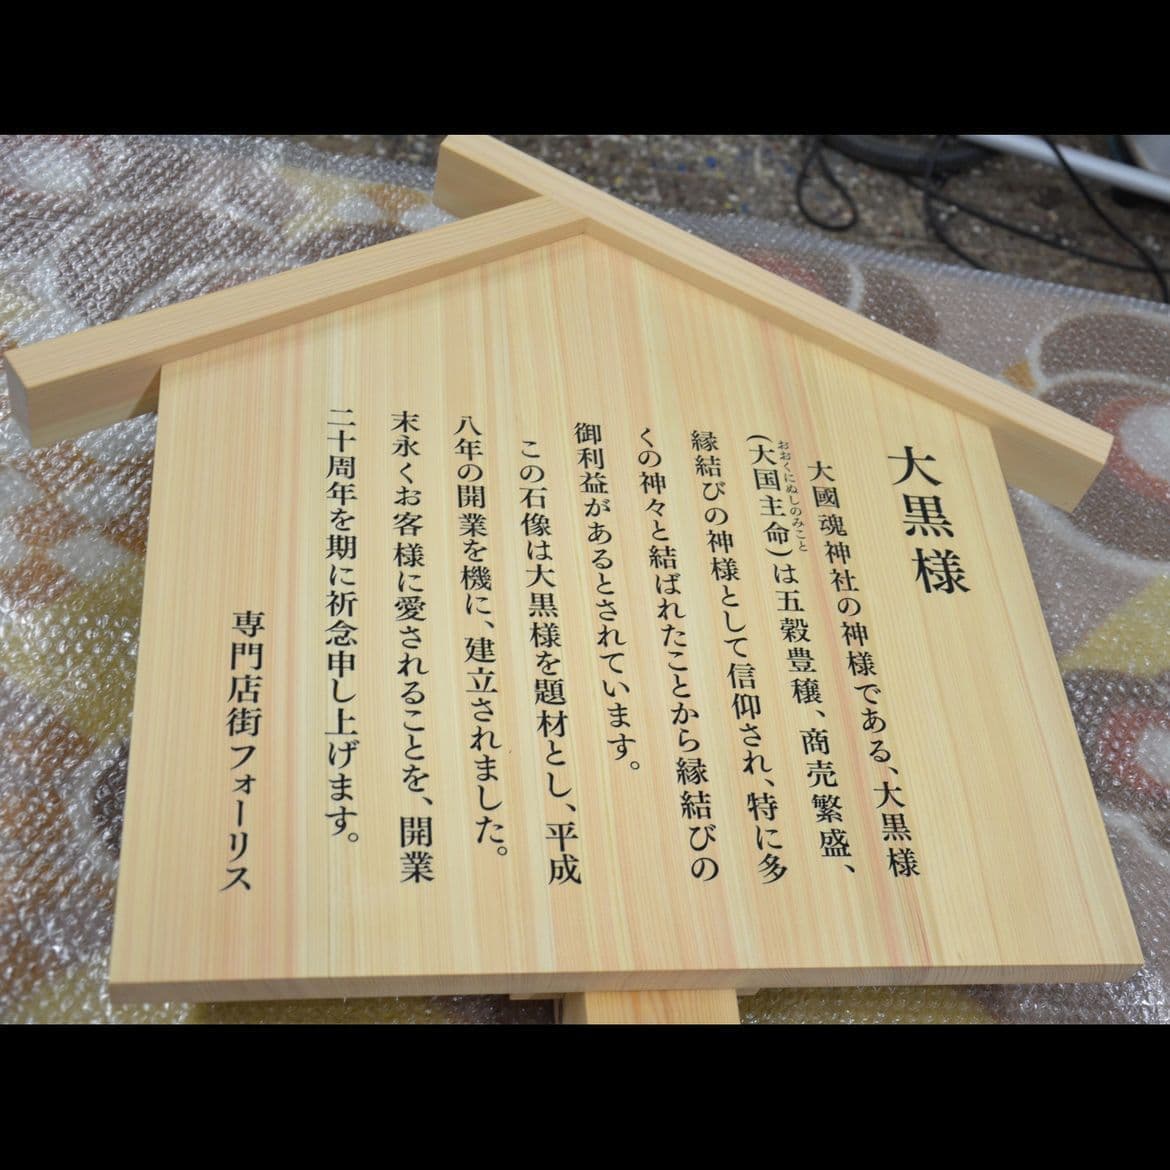 大黒様
大國魂神社の神様である、大黒様
（大国主命）は五穀豊穣、商売繁盛、
おおくにぬしのみこと
縁結びの神様として信仰され、特に多
くの神々と結ばれたことから縁結びの
御利益があるとされています。
この石像は大黒様を題材とし、平成
八年の開業を機に、建立されました。
末永くお客様に愛されることを、開業
二十周年を期に祈念申し上げます。
専門店街フォーリス